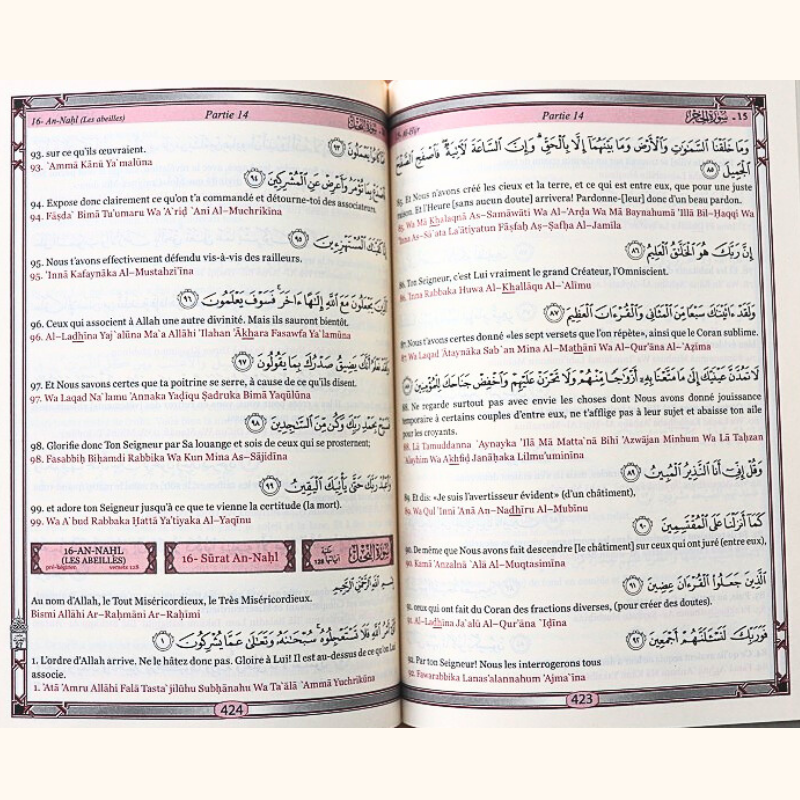 15 - سُورَةُ الحِجْر
Partie 14
15- Al-Ḥijr
وَمَا خَلَقْنَا السَّمَٰوَٰتِ وَالْأَرْضَ وَمَا بَيْنَهُمَا إِلَّا بِالْحَقِّ ۗ وَإِنَّ السَّاعَةَ لَآتِيَةٌ ۖ فَاصْفَحِ الصَّفْحَ
الْجَمِيلَ ٨٥
85. Et Nous n'avons créé les cieux et la terre, et ce qui est entre eux, que pour une juste
raison. Et l'Heure [sans aucun doute] arrivera! Pardonne-[leur] donc d'un beau pardon.
85. Wa Mā Khalaqnā As–Samāwāti Wa Al–'Arđa Wa Mā Baynahumā 'Illā Bil–Ḥaqqi Wa
'Inna As–Sā`ata La'ātiyatun Fāṣfaḥ Aṣ–Ṣafḥa Al–Jamīla
إِنَّ رَبَّكَ هُوَ الْخَلَّٰقُ الْعَلِيمُ ٨٦
86. Ton Seigneur, c'est Lui vraiment le grand Créateur, l'Omniscient.
86. 'Inna Rabbaka Huwa Al–Khallāqu Al–`Alīmu
وَلَقَدْ ءَاتَيْنَٰكَ سَبْعًا مِّنَ الْمَثَانِي وَالْقُرْءَانَ الْعَظِيمَ ٨٧
87. Nous t'avons certes donné «les sept versets que l'on répète», ainsi que le Coran sublime.
87. Wa Laqad 'Ātaynāka Sab`an Mina Al–Mathānī Wa Al–Qur'āna Al–`Aẓīma
لَا تَمُدَّنَّ عَيْنَيْكَ إِلَىٰ مَا مَتَّعْنَا بِهِۦٓ أَزْوَٰجًا مِّنْهُمْ وَلَا تَحْزَنْ عَلَيْهِمْ وَاخْفِضْ جَنَاحَكَ لِلْمُؤْمِنِينَ ٨٨
88. Ne regarde surtout pas avec envie les choses dont Nous avons donné jouissance
temporaire à certains couples d'entre eux, ne t'afflige pas à leur sujet et abaisse ton aile
pour les croyants.
88. Lā Tamuddanna `Aynayka 'Ilā Mā Matta`nā Bihi 'Azwājan Minhum Wa Lā Taḥzan
`Alayhim Wa Akhfiđ Janāḥaka Lilmu'uminīna
وَقُلْ إِنِّيٓ أَنَا النَّذِيرُ الْمُبِينُ ٨٩
89. Et dis: «Je suis l'avertisseur évident» (d'un châtiment),
89. Wa Qul 'Innī 'Anā An–Nadhīru Al–Mubīnu
كَمَآ أَنزَلْنَا عَلَى الْمُقْتَسِمِينَ ٩٠
90. De même que Nous avons fait descendre [le châtiment] sur ceux qui ont juré (entre eux),
90. Kamā 'Anzalnā `Alā Al–Muqtasimīna
الَّذِينَ جَعَلُوا الْقُرْءَانَ عِضِينَ ٩١
91. ceux qui ont fait du Coran des fractions diverses, (pour créer des doutes).
91. Al–Ladhīna Ja`alū Al–Qur'āna `Iđīna
فَوَرَبِّكَ لَنَسْـَٔلَنَّهُمْ أَجْمَعِينَ ٩٢
92. Par ton Seigneur! Nous les interrogerons tous
92. Fawarabbika Lanas'alannahum 'Ajma`īna
423
16- An-Naḥl (Les abeilles)
Partie 14
سُورَةُ النَّحْل
عَمَّا كَانُوا يَعْمَلُونَ ٩٣
93. sur ce qu'ils œuvraient.
93. `Ammā Kānū Ya`malūna
فَاصْدَعْ بِمَا تُؤْمَرُ وَأَعْرِضْ عَنِ الْمُشْرِكِينَ ٩٤
94. Expose donc clairement ce qu'on t'a commandé et détourne-toi des associateurs.
94. Fāṣda` Bimā Tu'umaru Wa 'A`riđ `Ani Al–Muchrikīna
إِنَّا كَفَيْنَٰكَ الْمُسْتَهْزِءِينَ ٩٥
95. Nous t'avons effectivement défendu vis-à-vis des railleurs.
95. 'Innā Kafaynāka Al–Mustahzi'īna
الَّذِينَ يَجْعَلُونَ مَعَ اللَّهِ إِلَٰهًا ءَاخَرَ ۚ فَسَوْفَ يَعْلَمُونَ ٩٦
96. Ceux qui associent à Allah une autre divinité. Mais ils sauront bientôt.
96. Al–Ladhīna Yaj`alūna Ma`a Allāhi 'Ilahan 'Ākhara Fasawfa Ya`lamūna
وَلَقَدْ نَعْلَمُ أَنَّكَ يَضِيقُ صَدْرُكَ بِمَا يَقُولُونَ ٩٧
97. Et Nous savons certes que ta poitrine se serre, à cause de ce qu'ils disent.
97. Wa Laqad Na`lamu 'Annaka Yađīqu Ṣadruka Bimā Yaqūlūna
فَسَبِّحْ بِحَمْدِ رَبِّكَ وَكُن مِّنَ السَّٰجِدِينَ ٩٨
98. Glorifie donc Ton Seigneur par Sa louange et sois de ceux qui se prosternent;
98. Fasabbiḥ Biḥamdi Rabbika Wa Kun Mina As–Sājidīna
وَاعْبُدْ رَبَّكَ حَتَّىٰ يَأْتِيَكَ الْيَقِينُ ٩٩
99. et adore ton Seigneur jusqu'à ce que te vienne la certitude (la mort).
99. Wa A`bud Rabbaka Ḥattā Ya'tiyaka Al–Yaqīnu
16-AN-NAHL
(LES ABEILLES)
pré-hégirien versets: 128
16- Sūrat An-Naḥl
سُورَةُ النَّحْل
128
بِسْمِ اللَّهِ الرَّحْمَٰنِ الرَّحِيمِ
Au nom d'Allah, le Tout Miséricordieux, le Très Miséricordieux.
Bismi Allāhi Ar–Raḥmāni Ar–Raḥīmi
أَتَىٰٓ أَمْرُ اللَّهِ فَلَا تَسْتَعْجِلُوهُ ۚ سُبْحَٰنَهُۥ وَتَعَٰلَىٰ عَمَّا يُشْرِكُونَ ١
1. L'ordre d'Allah arrive. Ne le hâtez donc pas. Gloire à Lui! Il est au-dessus de ce qu'on Lui
associe.
1. 'Atā 'Amru Allāhi Falā Tasta`jilūhu Subḥānahu Wa Ta`ālā `Ammā Yuchrikūna
424